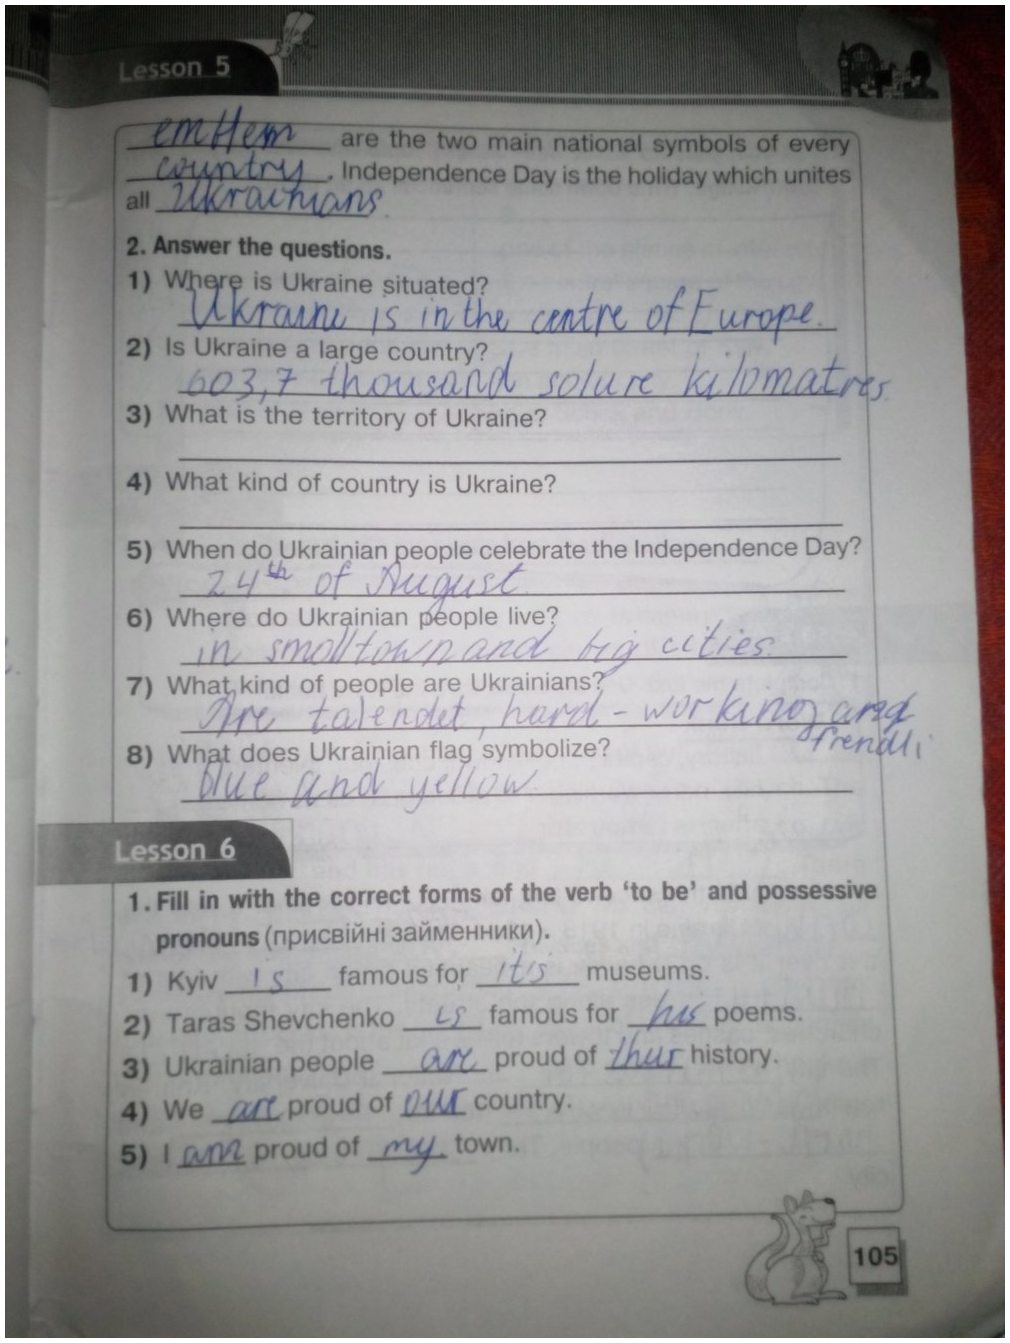 Lesson 5
emHem are the two main national symbols of every
country. Independence Day is the holiday which unites
all Ukrainians.
2. Answer the questions.
1) Where is Ukraine situated?
Ukraine is in the centre of Europe.
2) Is Ukraine a large country?
603,7 thousand solure kilomatres.
3) What is the territory of Ukraine?
4) What kind of country is Ukraine?
5) When do Ukrainian people celebrate the Independence Day?
24th of August.
6) Where do Ukrainian people live?
in small town and big cities.
7) What kind of people are Ukrainians?
Are talendet, hard-working and
frendli
8) What does Ukrainian flag symbolize?
blue and yellow.
Lesson 6
1. Fill in with the correct forms of the verb ‘to be’ and possessive
pronouns (присвійні займенники).
1) Kyiv is famous for it's museums.
2) Taras Shevchenko is famous for his poems.
3) Ukrainian people are proud of thur history.
4) We are proud of our country.
5) I am proud of my town.
105